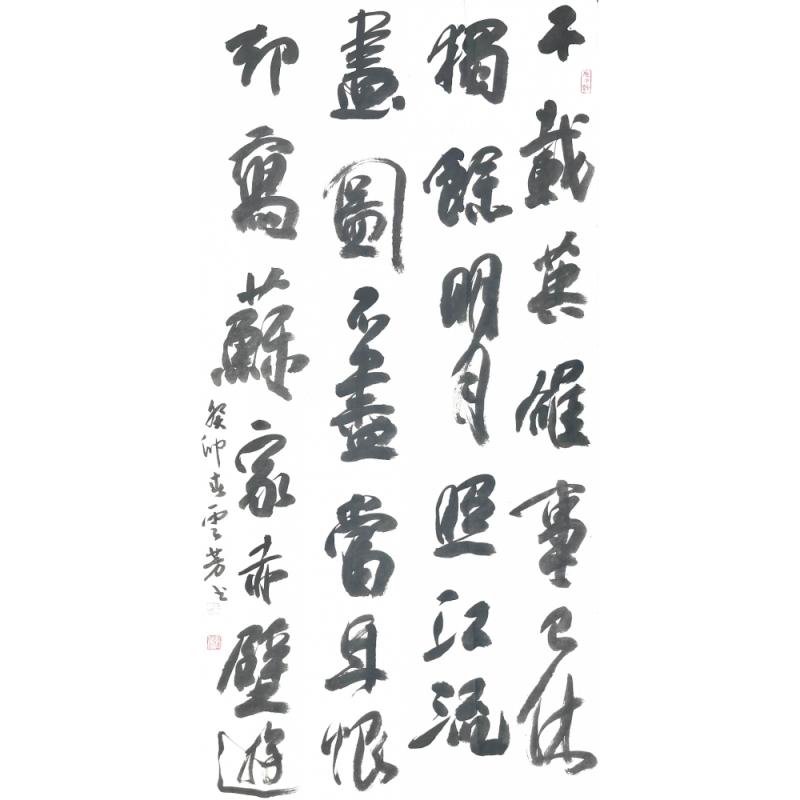 千載英雄事已休
獨餘明月照江流
畫圖不盡當年恨
却寫蘇家赤壁遊
癸卯春雲芳书